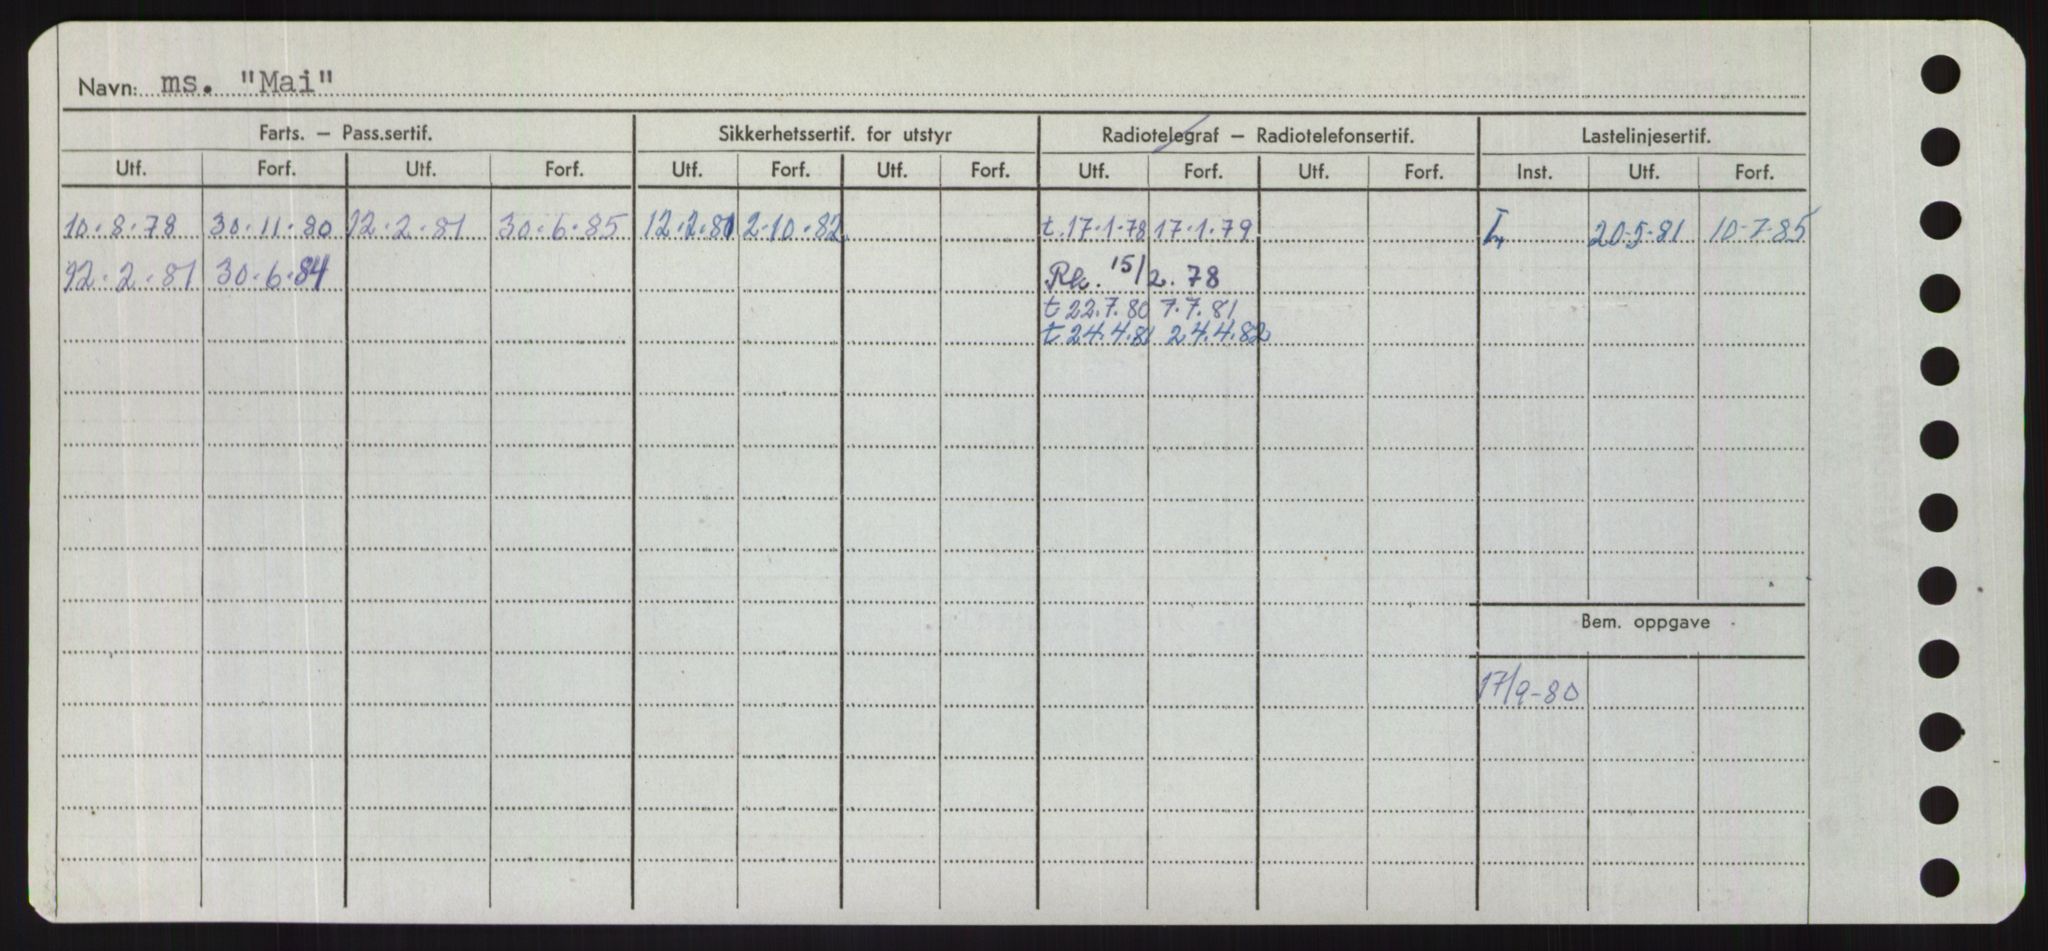 Navn: ms. "Mai"
Farts. – Pass.sertif. Sikkerhetssertif. for utstyr Radiotelegraf – Radiotelefonsertif. Lastelinjesertif.
Utf. Forf. Utf. Forf. Utf. Forf. Utf. Forf. Utf. Forf. Utf. Forf. Inst. Utf. Forf.
10.8.78 30.11.80 12.2.81 30.6.85 12.2.81 2.10.82 t.17.1.78 17.1.79 20.5.81 10.7.85
12.2.81 30.6.84 Rk. 15/2.78
t 22.7.80 7.7.81
t 24.4.81 24.4.82
Bem. oppgave
17/9-80